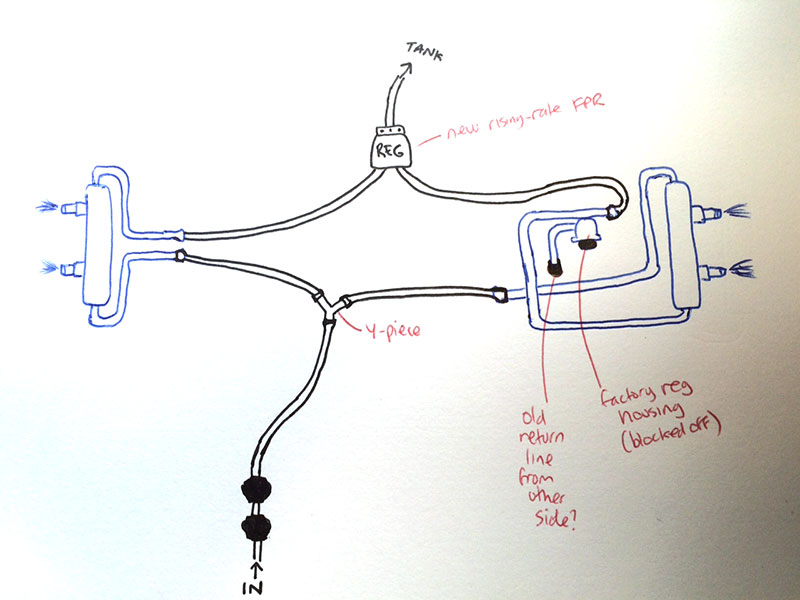 TANK
new rising-rate FPR
REG
Y-piece
factory reg
housing
(blocked off)
old
return
line
from
other
side?
IN